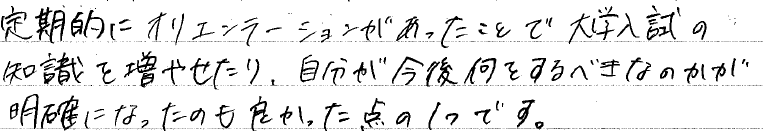 定期的にオリエンテーションがあったことで大学入試の
知識を増やせたり、自分が今後何をするべきなのかが
明確になったのも良かった点の1つです。